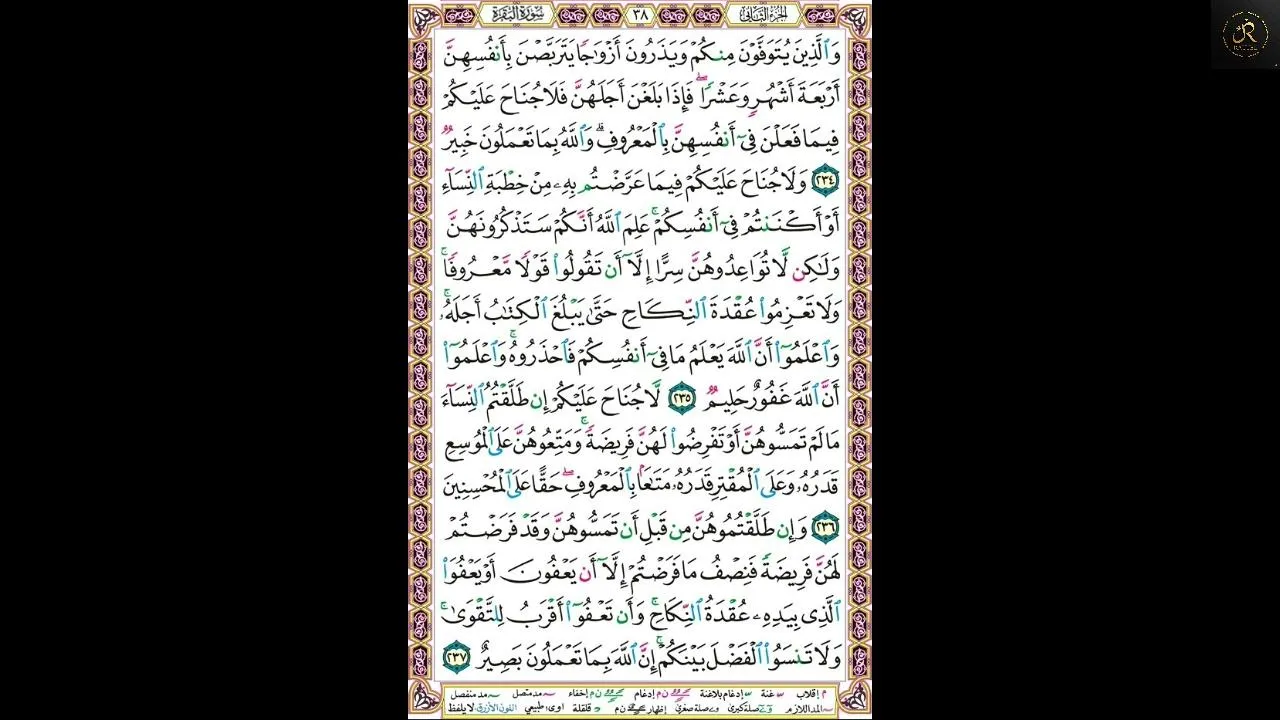 الجزء الثاني ٣٨ سورة البقرة
وَالَّذِينَ يُتَوَفَّوْنَ مِنكُمْ وَيَذَرُونَ أَزْوَٰجًا يَتَرَبَّصْنَ بِأَنفُسِهِنَّ
أَرْبَعَةَ أَشْهُرٍ وَعَشْرًا ۖ فَإِذَا بَلَغْنَ أَجَلَهُنَّ فَلَا جُنَاحَ عَلَيْكُمْ
فِيمَا فَعَلْنَ فِىٓ أَنفُسِهِنَّ بِالْمَعْرُوفِ ۗ وَاللَّهُ بِمَا تَعْمَلُونَ خَبِيرٌ
٢٣٤ وَلَا جُنَاحَ عَلَيْكُمْ فِيمَا عَرَّضْتُم بِهِۦ مِنْ خِطْبَةِ النِّسَآءِ
أَوْ أَكْنَنتُمْ فِىٓ أَنفُسِكُمْ ۚ عَلِمَ اللَّهُ أَنَّكُمْ سَتَذْكُرُونَهُنَّ
وَلَٰكِن لَّا تُوَاعِدُوهُنَّ سِرًّا إِلَّآ أَن تَقُولُوا قَوْلًا مَّعْرُوفًا ۚ
وَلَا تَعْزِمُوا عُقْدَةَ النِّكَاحِ حَتَّىٰ يَبْلُغَ الْكِتَٰبُ أَجَلَهُۥ ۚ
وَاعْلَمُوٓا أَنَّ اللَّهَ يَعْلَمُ مَا فِىٓ أَنفُسِكُمْ فَاحْذَرُوهُ ۚ وَاعْلَمُوٓا
أَنَّ اللَّهَ غَفُورٌ حَلِيمٌ ٢٣٥ لَّا جُنَاحَ عَلَيْكُمْ إِن طَلَّقْتُمُ النِّسَآءَ
مَا لَمْ تَمَسُّوهُنَّ أَوْ تَفْرِضُوا لَهُنَّ فَرِيضَةً ۚ وَمَتِّعُوهُنَّ عَلَى الْمُوسِعِ
قَدَرُهُۥ وَعَلَى الْمُقْتِرِ قَدَرُهُۥ مَتَٰعًا بِالْمَعْرُوفِ ۖ حَقًّا عَلَى الْمُحْسِنِينَ
٢٣٦ وَإِن طَلَّقْتُمُوهُنَّ مِن قَبْلِ أَن تَمَسُّوهُنَّ وَقَدْ فَرَضْتُمْ
لَهُنَّ فَرِيضَةً فَنِصْفُ مَا فَرَضْتُمْ إِلَّآ أَن يَعْفُونَ أَوْ يَعْفُوَا
الَّذِى بِيَدِهِۦ عُقْدَةُ النِّكَاحِ ۚ وَأَن تَعْفُوٓا أَقْرَبُ لِلتَّقْوَىٰ ۚ
وَلَا تَنسَوُا الْفَضْلَ بَيْنَكُمْ ۚ إِنَّ اللَّهَ بِمَا تَعْمَلُونَ بَصِيرٌ ٢٣٧
م إقلاب غنة إدغام بلاغنة ن م إدغام ن م إخفاء مد متصل مد منفصل
المد اللازم صلة كبرى صلة صغرى إظهار ن م قلقلة طبيعي اللون الأزرق لا يلفظ